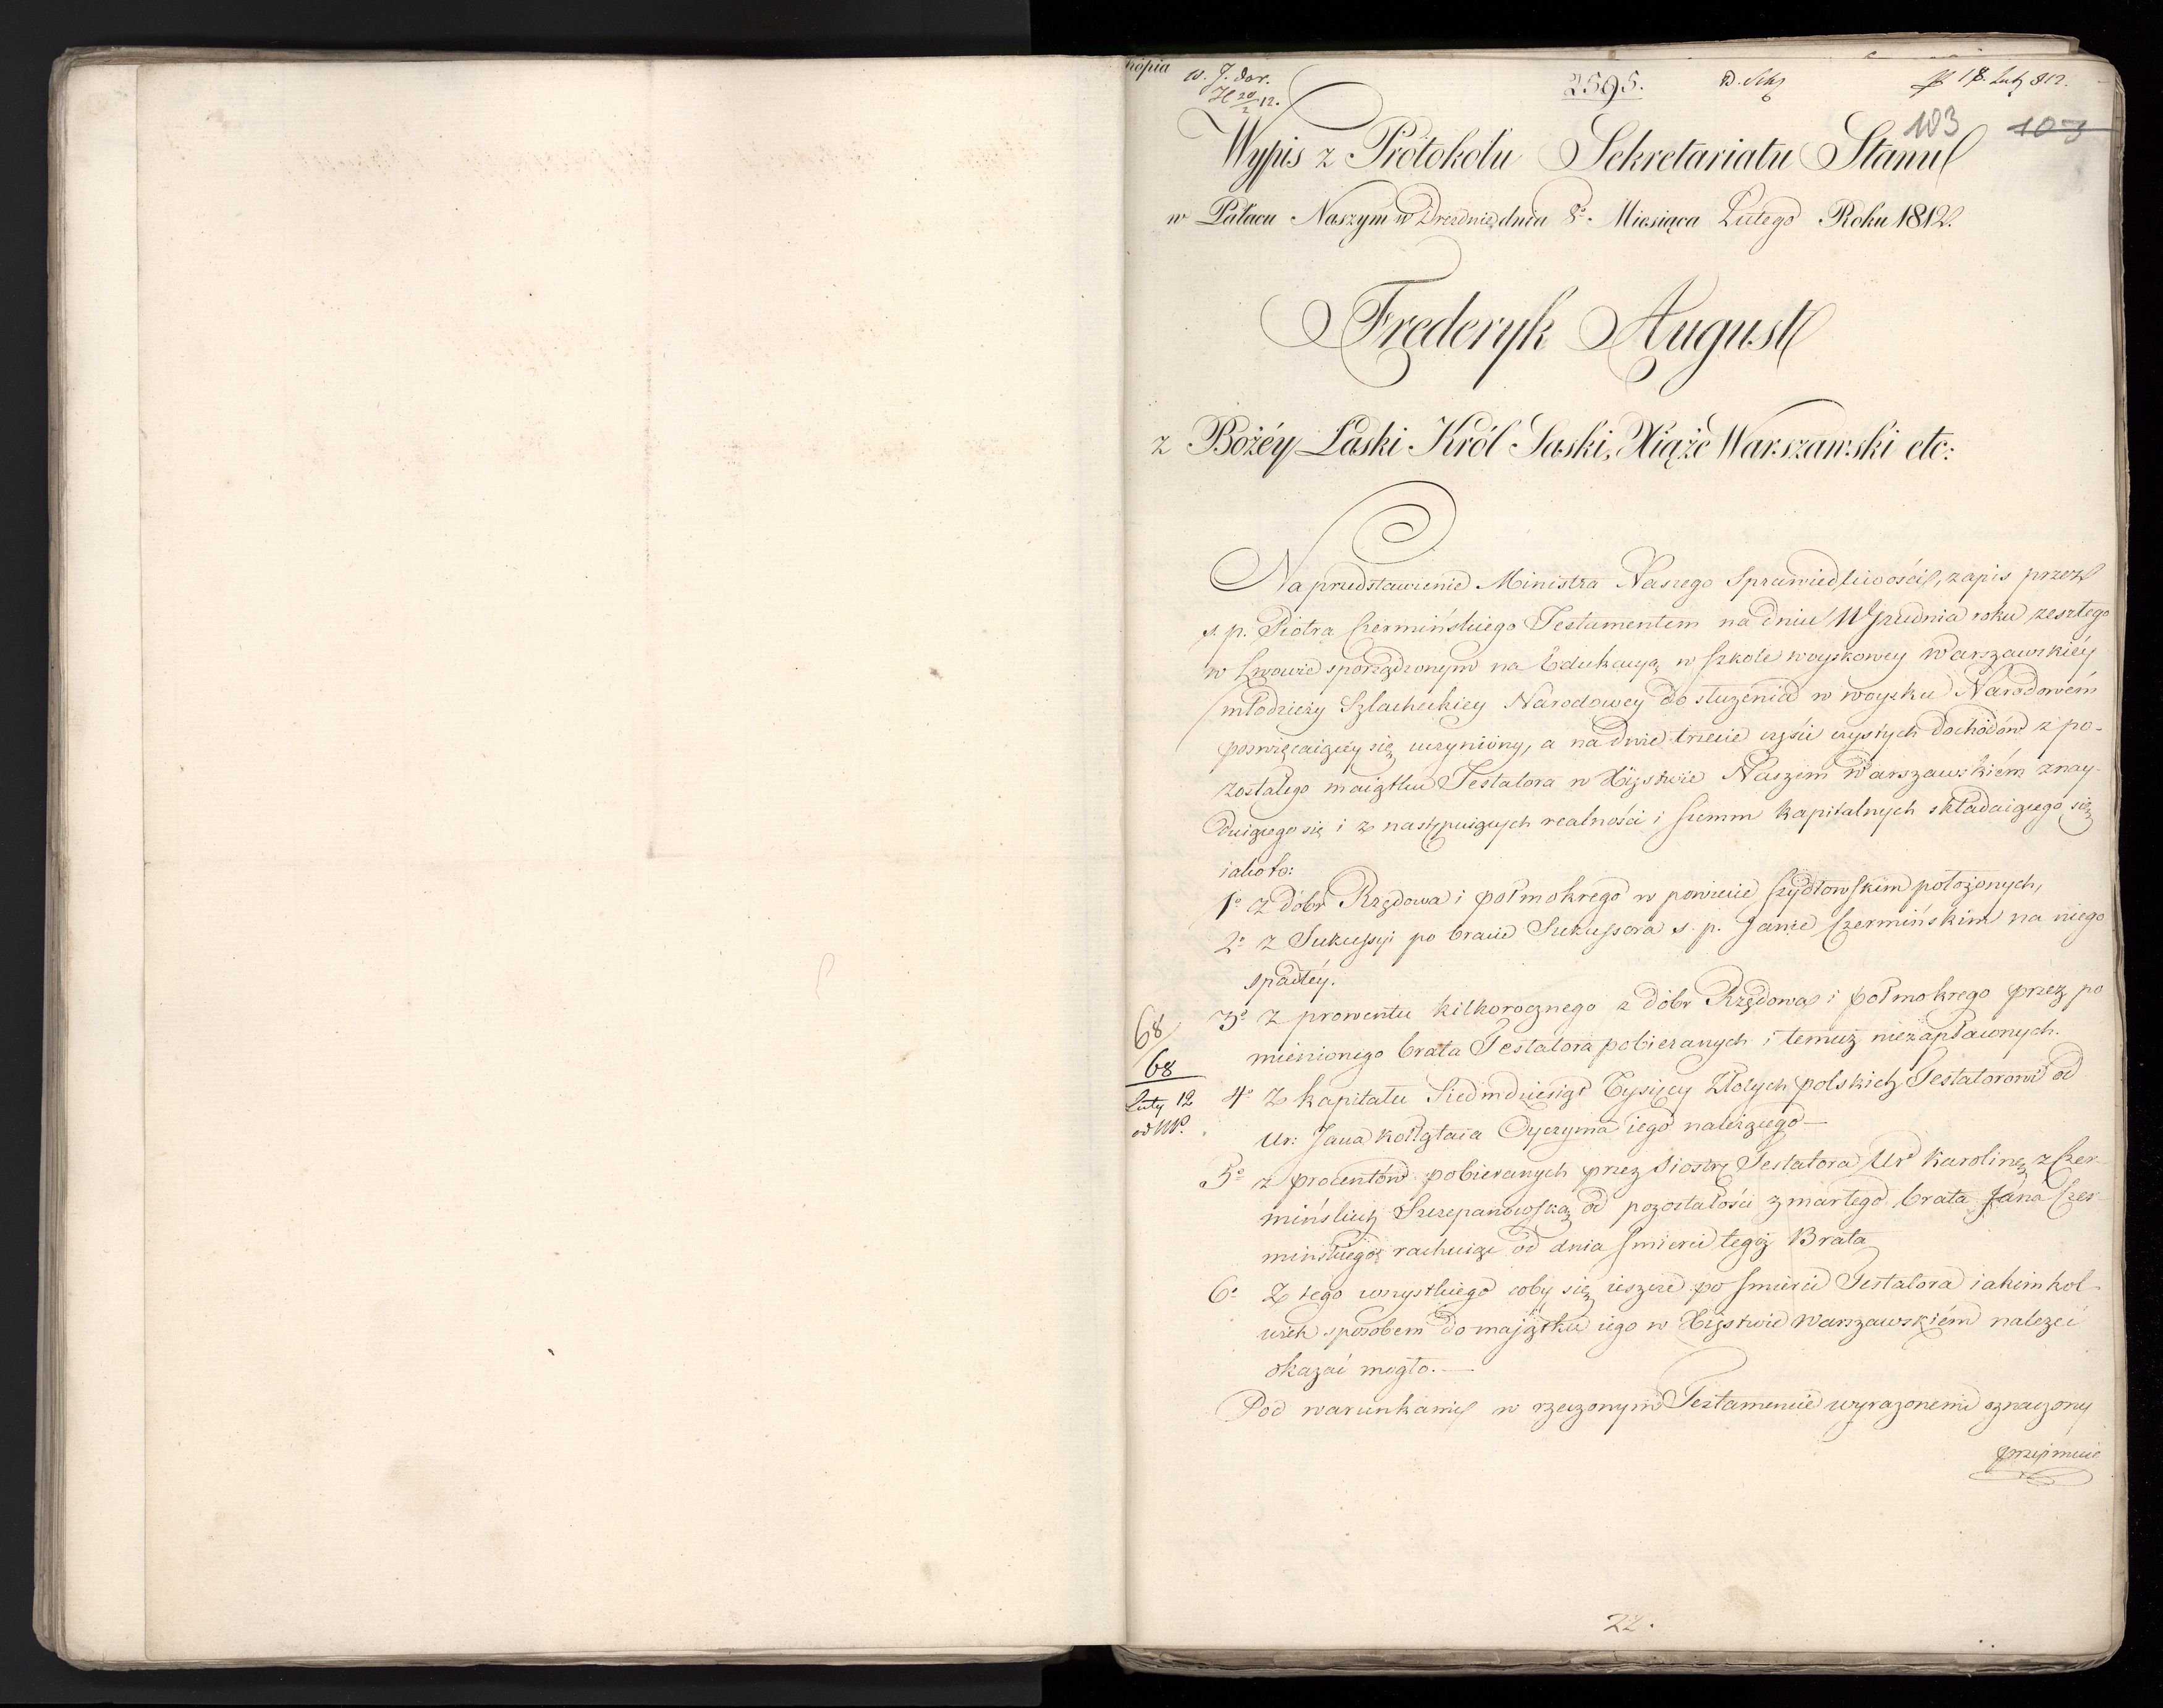 kopia
2595.
18. Lut 812.
103 103
Wypis z Protokołu Sekretariatu Stanu
w Pałacu Naszym w Dreźnie, dnia 8º Miesiąca Lutego Roku 1812.
Frederyk August
z Bożéy Łaski Król Saski, Xiąże Warszawski etc:
Na przedstawienie Ministra Naszego Sprawiedliwości, zapis przez
s. p. Piotra Czermińskiego Testamentem na dniu 11 Grudnia roku zeszłego
w Lwowie sporządzonym na Edukacyą w Szkole woyskowey Warszawskiéy
młodzieży Szlacheckiey Narodowey do służenia w woysku Narodowém
poswięcaiącey się uczyniony, a na dwie trzecie części czystych dochodów z po-
zostałego maiątku Testatora w Xięstwie Naszém Warszawskiém znay-
duiącego się i z następuiących realności i summ kapitalnych składaiącego się
iako to:
1º z dóbr Rzędowa i połmokrego w powiecie Szydłowskim położonych,
2º z Sukcessyi po bracie Sukcessora s. p. Janie Czermińskim na niego
spadłéy.
3º z prowentu kilkorocznego z dóbr Rzędowa i połmokrego przez po
mienionego brata Testatora pobieranych i temuż niezapłaconych.
4º z kapitału Siedmdziesiąt Tysięcy Złotych polskich Testatorowi od
Ur: Jana kołłątaia Oyczyma iego należącego —
5º z procentów pobieranych przez Siostrę Testatora Ur Karolinę z Czer-
mińskich Szczepanowską od pozostałości zmarłego brata Jana Czer-
mińskiego rachuiąc od dnia śmierci tegoż Brata
6º Z tego wszystkiego coby się ieszcze po śmierci Testatora iakimkol-
wiek sposobem do majątku iego w Xięstwie Warszawskiém należeć
okazać mogło. —
Pod warunkami w rzeczonym Testamencie wyrażonemi oznaczony
przyimuie
68
68
Luty 12
22.